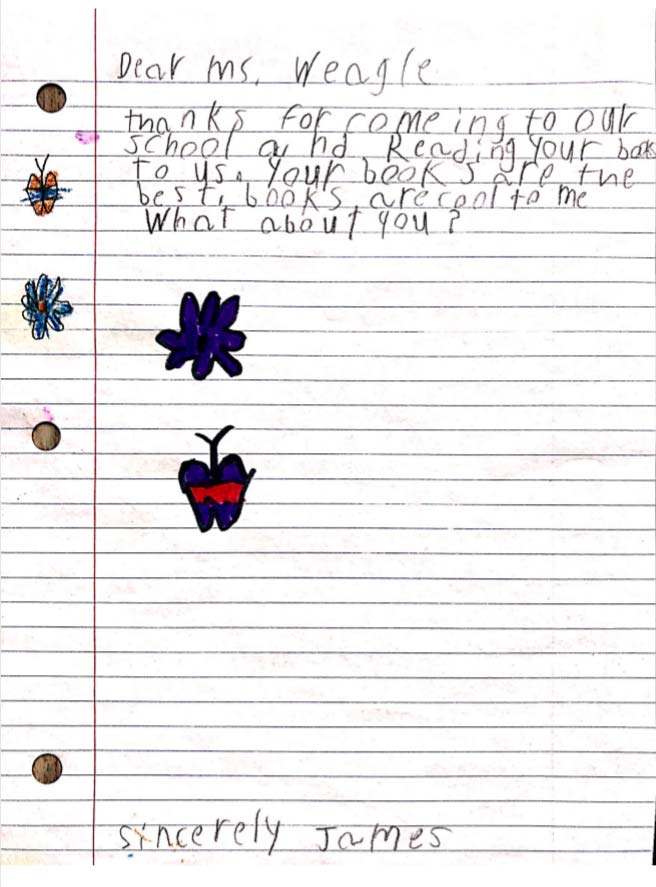 Dear Ms. Weagle
thanks for come ing to our
school and Reading your books
to us. Your books are the
best. books are cool to me
What about you ?
sincerely James